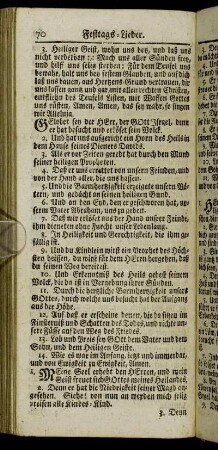 70 Festtags-Lieder.
3. Heiliger Geist, wohn uns bey, und laß uns
nicht verderben :,: Mach uns aller Sünden frey,
und hilff uns selig sterben: Für dem Teufel uns
bewahr, halt uns bey festem Glauben, und auf dich
laß uns bauen, aus Hertzens-Grund vertrauen, dir
uns lassen gantz und gar, mit allen rechten Christen,
entfliehen des Teufels Listen, mit Waffen Gottes
uns rüsten, Amen, Amen, das sey wahr, so singen
wir Alleluia.
Gelobet sey die HErr, der GOtt Israel, denn
er hat besucht und erlöset sein Volck.
2. Und hat uns aufgericht ein Horn des Heils in
dem Hause seines Dieners Davids.
3. Als er vor Zeiten geredt hat durch den Mund
seiner heiligen Propheten.
4. Daß er uns errettet von unsern Feinden, und
von der Hand aller, die uns hassen.
5. Und die Barmhertzigkeit erzeigete unsern Vä-
tern, und gedächt an seinen heiligen Bund.
6. Und an den Eyd, den er geschworen hat, un-
serm Vater Abraham, uns zu geben.
7. Daß wir erlöset aus der Hand unser Feinde,
ihm dieneten ohne Furcht unser Lebenlang.
8. In Heiligkeit und Gerechtigkeit, die ihm ge-
fällig ist.
9. Und du Kindlein wirst ein Prophet des Höch-
sten heissen, du wirst für dem HErrn hergehen, daß
du seinen Weg bereitest.
10. Und Erkenntniß des Heils gebest seinem
Volck, die da ist in Vergebung ihrer Sünden.
11. Durch die hertzliche Barmhertzigkeit unsers
GOttes, durch welche uns besucht hat der Aufgang
aus der Höhe.
12. Auf daß er erscheine denen, die da sitzen im
Finsterniß und Schatten des Todes, und richte uns-
sere Füsse auf den Weg des Friedes.
13. Lob und Preis sey GOtt dem Vater und dem
Sohn, und dem Heiligen Geiste.
14. Wie es war im Anfang, jetzt und immerdar,
und von Ewigkeit zu Ewigkeit, Amen.
1. Meine Seel erhebt den HErren, und mein
Geist freuet sich GOttes meines Heilandes.
2. Denn er hat die Niedrigkeit seiner Magd an-
gesehen. Siehe: von nun an werden mich selig
preisen alle Kindes-Kind.
3. Denn